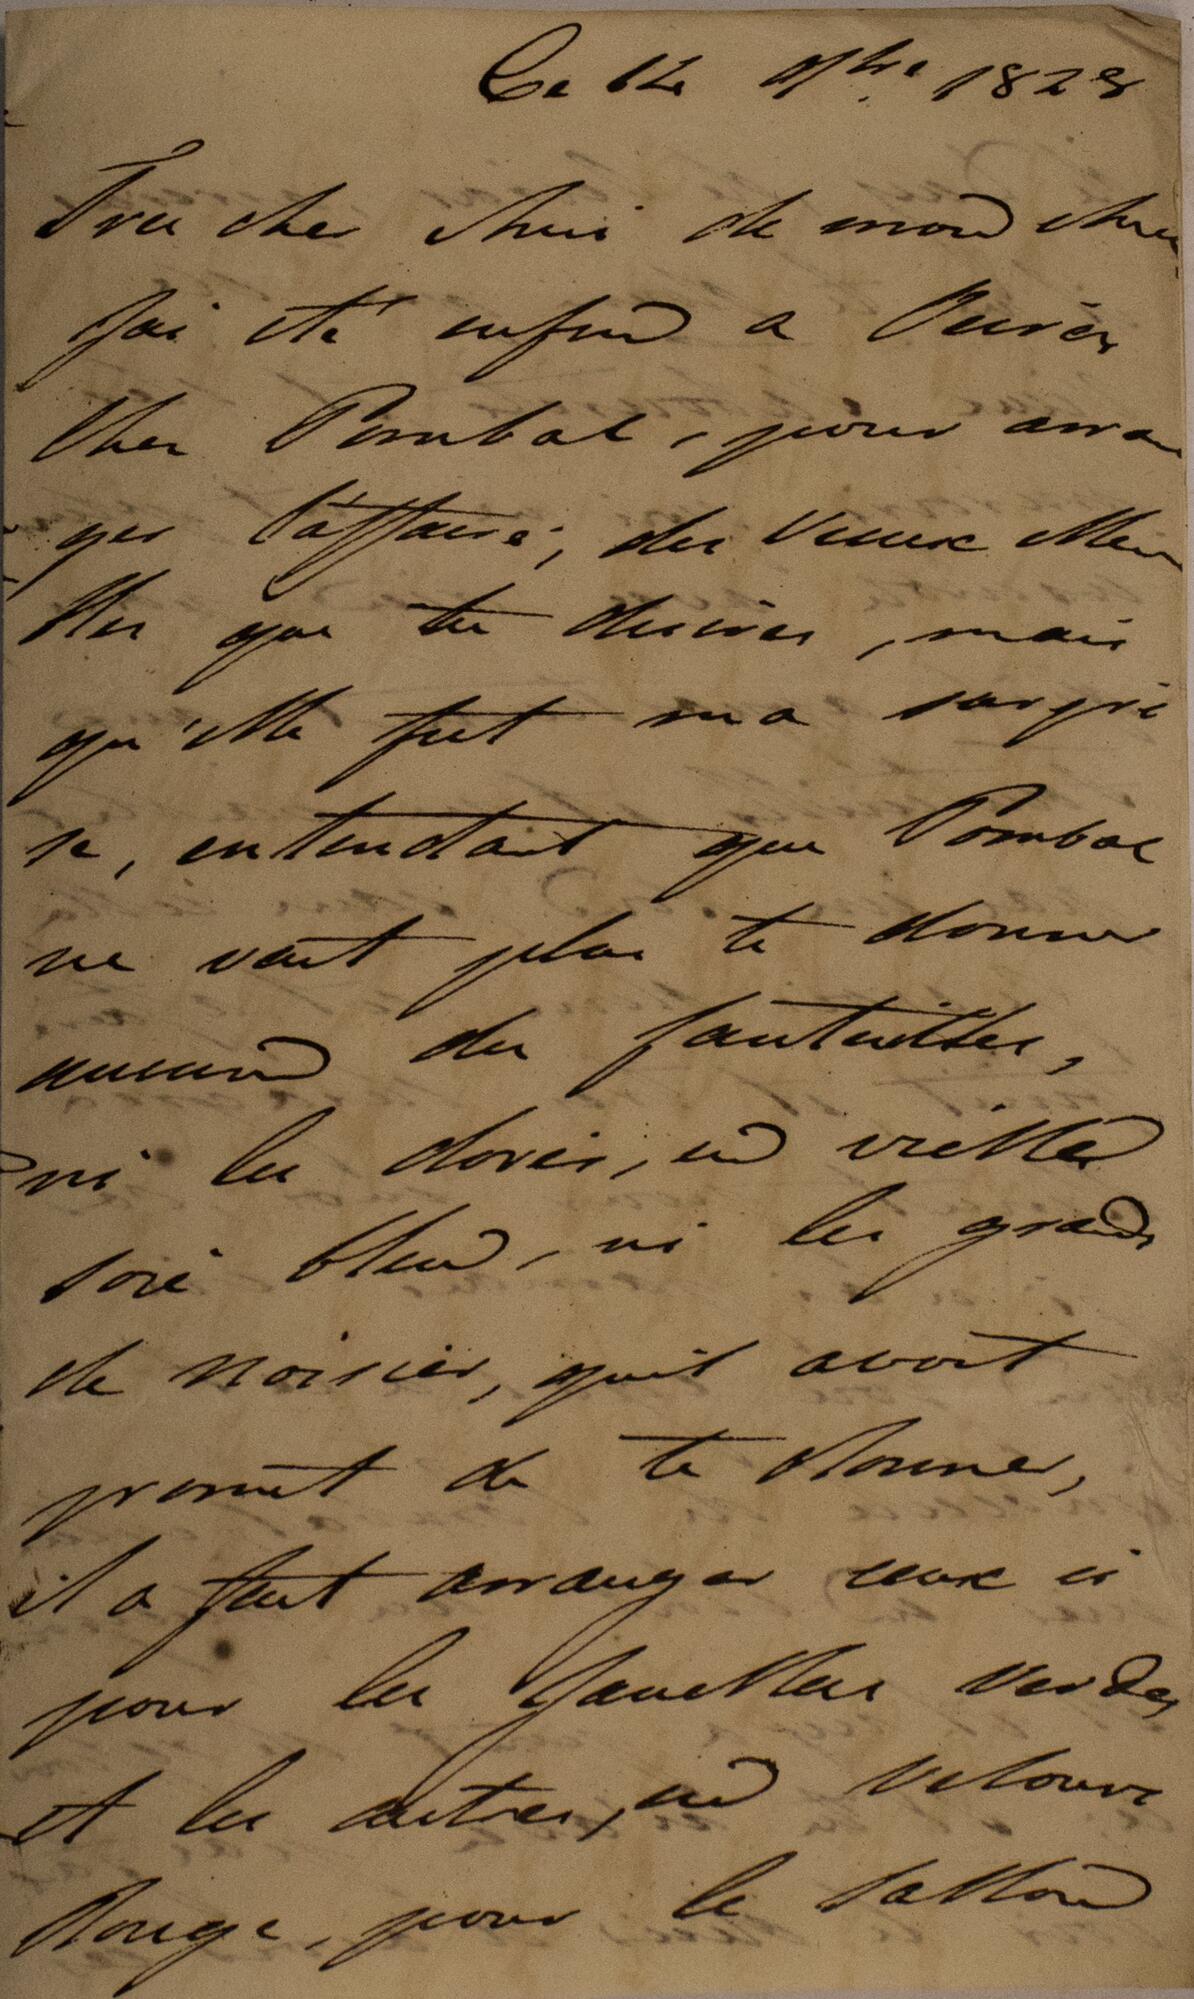 Ce 14 9bre 1828
Tres cher Ami de mond cheur
Jai été enfind a Oeiras
Cher Pombal, pour arran
ger l'affaire, des vieux Meu
bles que tu desires, mais
qu'elle fut ma surpri
se, entendant que Pombal
ne vout plus te donner
aucund des fauteilles,
ni les dorés, end vielle
soie bleud, ni les grands
de noisier, quil avoit
promit de te donner,
il a fait arranger ceux ci
pour les verdes
et les autres, end veloure
Rouge, pour le sallond